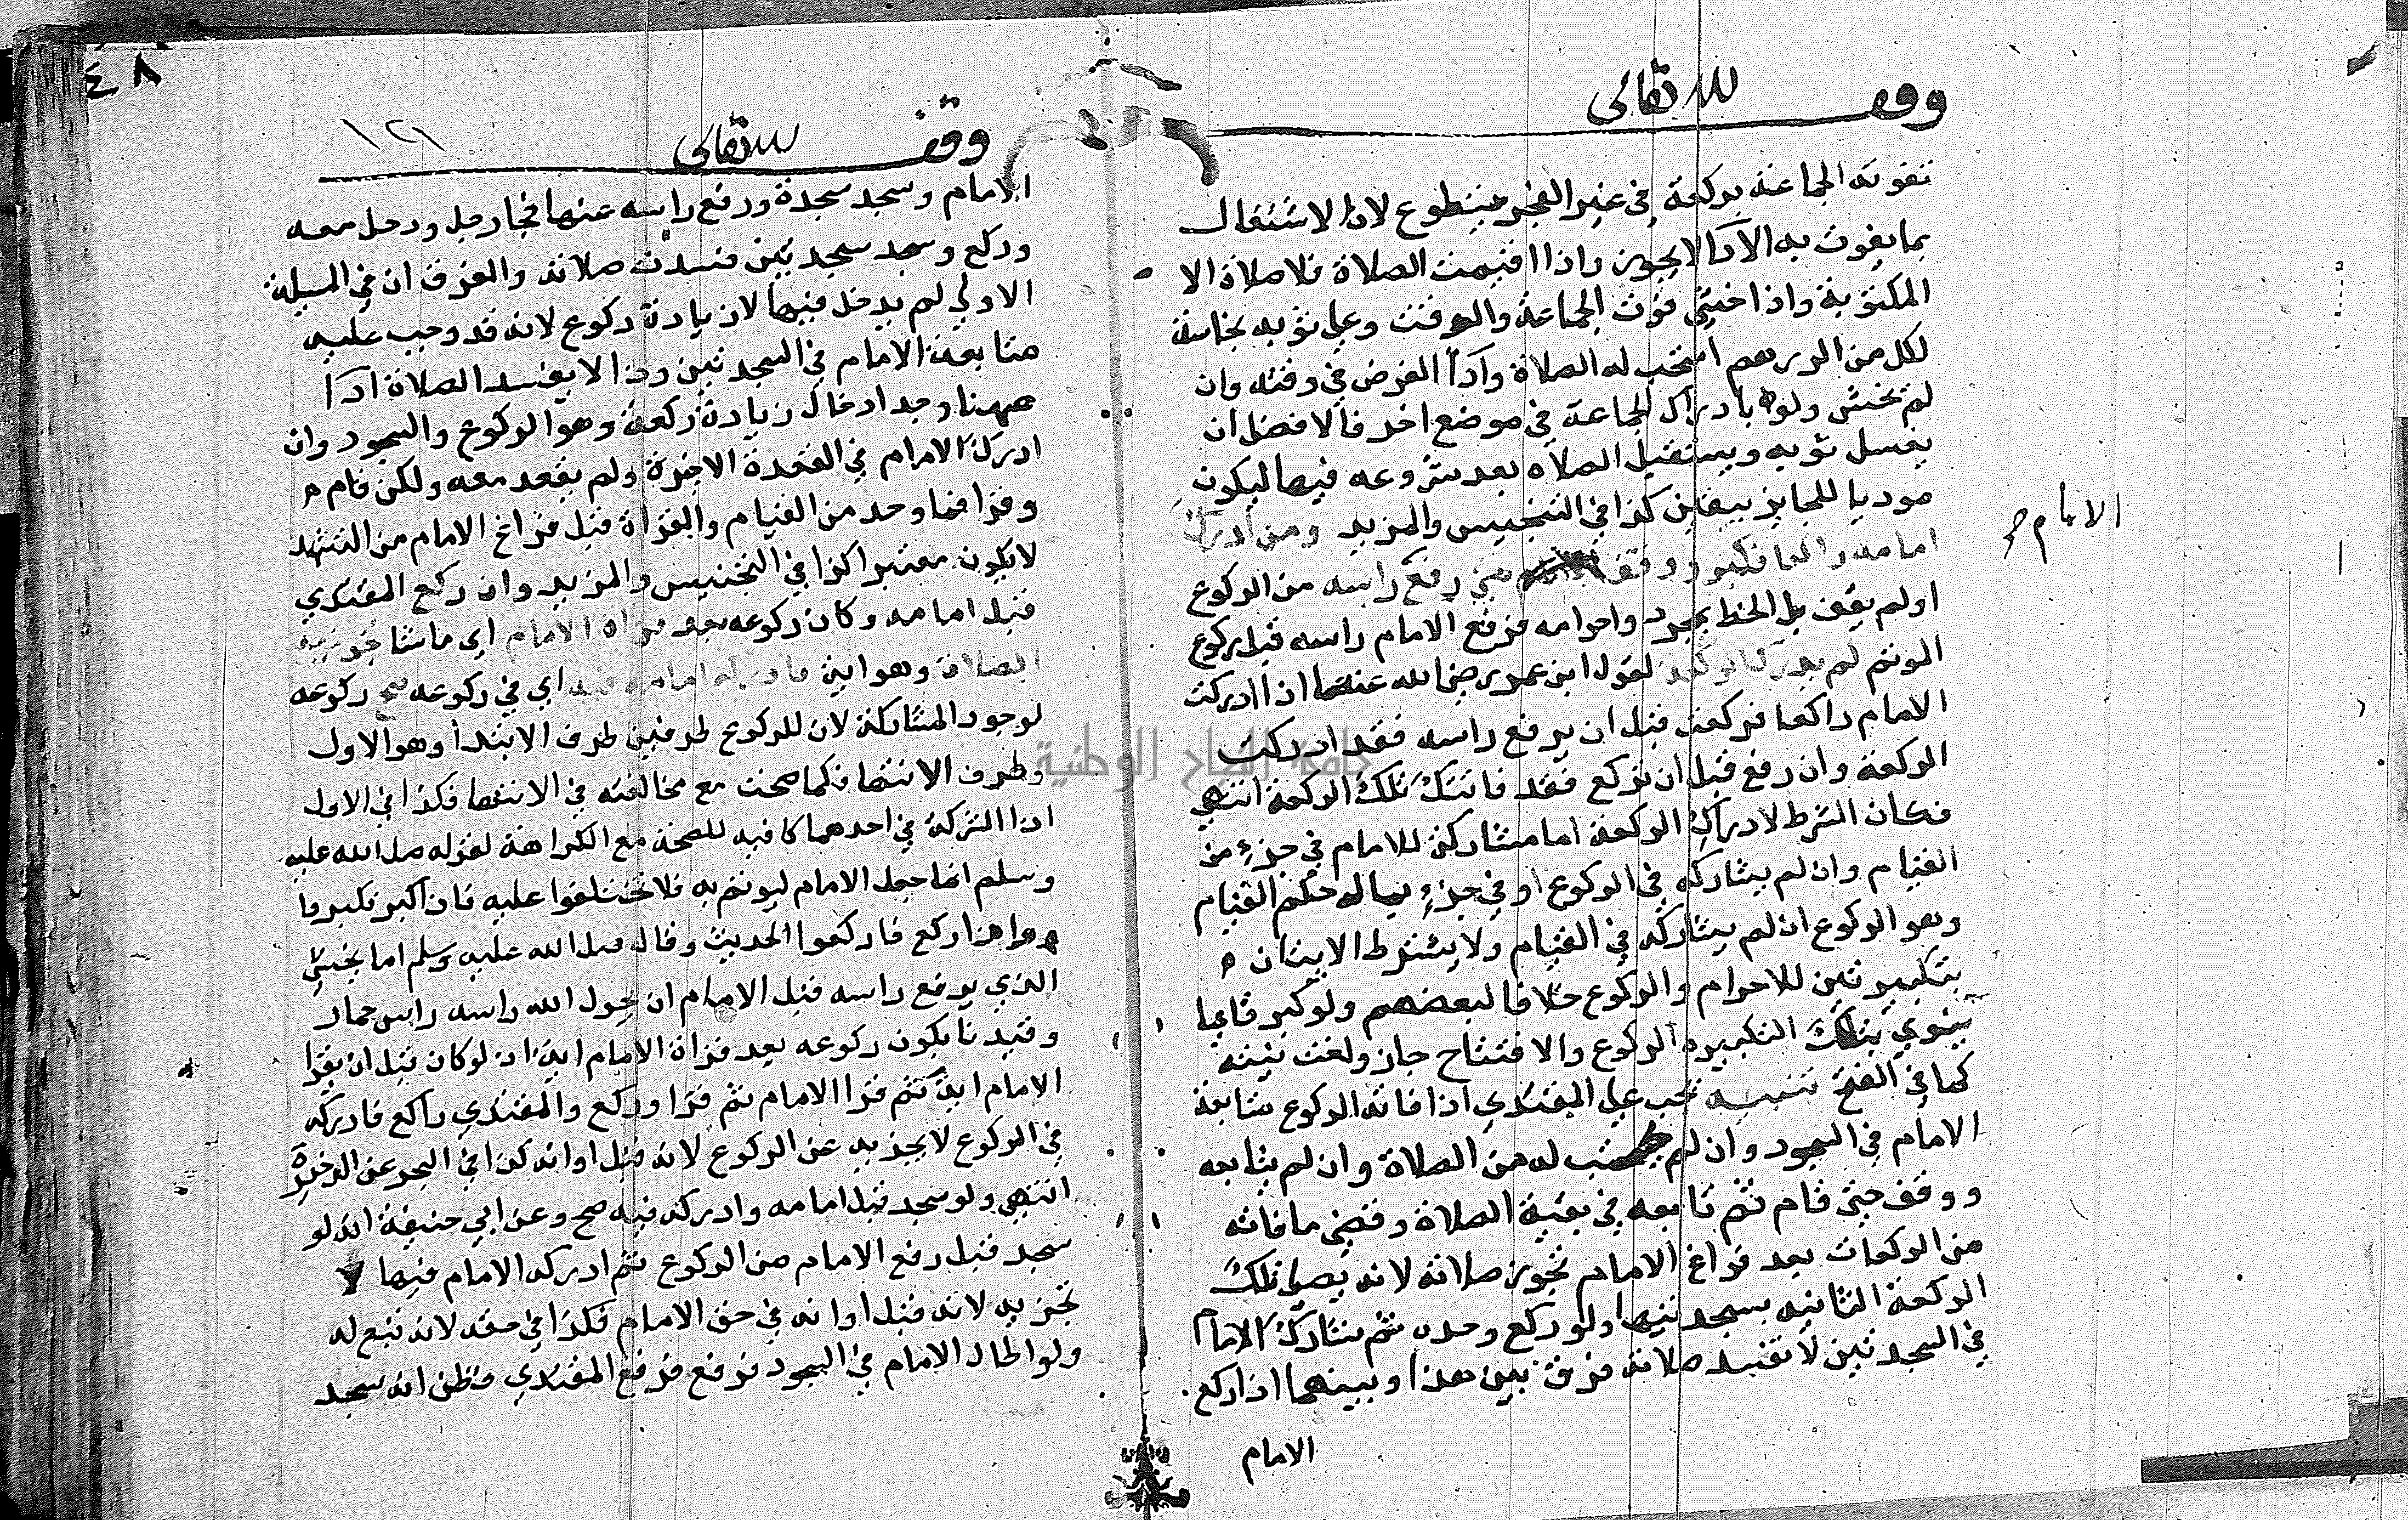 وقف لله تعالى
تفوته الجماعة بركعة في غير الفجر يتطوع لان الاشتغال
بما يفوت به الاداء لا يجوز واذا اقيمت الصلاة فلا صلاة الا
المكتوبة واذا خشي فوت الجماعة والوقت وعلى ثوبه نجاسة
لكل من الدرهم استحب له الصلاة واداء الفرض في وقته وان
لم يخش ولو بادراك الجماعة في موضع اخر فالافضل ان
يغسل ثوبه ويستقبل الصلاه بعد شروعه فيها ليكون
موديا للجايز بيقين كذا في التجنيس والمزيد ومن ادرك
امامه راكعا فكبر ووقف حتى رفع راسه من الركوع
الامام صح
اولم يقف بل انحط بمجرد واحرامه فرفع الامام راسه قبل ركوع
الموتم لم يدرك الركعة لقول ابن عمر رضي الله عنهما اذا ادركت
الامام راكعا فركعت قبل ان يرفع راسه فقد ادركت
الركعة وان رفع قبل ان تركع فقد فاتتك تلك الركعة انتهي
فكان الشرط لادراك الركعة اما مشاركة للامام في جزء من
القيام وان لم يشاركه في الركوع او في جزء مما له حكم القيام
وهو الركوع ان لم يشاركه في القيام ولا يشترط الاتيان
بتكبيرتين للاحرام والركوع خلافا لبعضهم ولو كبر قايما
ينوي بتلك التكبيرة الركوع والافتتاح جاز ولغت نيته
كما في الفتح تنبيه تجب على المقتدي اذا فاته الركوع متابعة
الامام في السجود وان لم يحتسب له من الصلاة وان لم يتابعه
ووقف حتى قام ثم تابعه في بقية الصلاة وقضى ما فاته
من الركعات بعد فراغ الامام تجوز صلاته لانه يصلي تلك
الركعة الثانيه بسجدتيها ولو ركع وحده ثم شارك الامام
في السجدتين لا تفسد صلاته فرق بين هذا وبينهما اذا ركع
الامام
٤٨
وقف لله تعالى
١٢١
الامام وسجد سجدة ورفع راسه عنها فجا رجل ودخل معه
وركع وسجد سجدتين فسدت صلاته والفرق ان في المسيلة
الاولى لم يدخل فيها لا زيادة ركوع لانه قد وجب عليه
متابعة الامام في السجدتين وذا لا يفسد الصلاة اذا
ههنا وجد ادخال زيادة ركعة وهو الركوع والسجود وان
ادرك الامام في القعدة الاخيرة ولم يقعد معه ولكن قام
وقرا فما وجد من القيام والقراة قبل فراغ الامام من التشهد
لا يكون معتبرا كذا في التجنيس والمزيد وان ركع المقتدي
قبل امامه وكان ركوعه بعد قراه الامام اي ما شا تجوز به
الصلاة وهو اية فادركه امامه فيه اي في ركوعه صح ركوعه
لوجود المشاركة لان للركوع طرفين طرف الابتدا وهو الاول
وطرف الانتها فكما صحت مع مخالفته في الانتها فكذا في الاول
اذا الشركة في احدهما كافيه للصحة مع الكراهة لقوله صلى الله عليه
وسلم انما جعل الامام ليوتم به فلا تختلفوا عليه فاذا كبر فكبروا
واذا ركع فاركعوا الحديث وقال صلى الله عليه وسلم اما يخشي
الذي يرفع راسه قبل الامام ان يحول الله راسه راس حمار
وقيدنا بكون ركوعه بعد قراة الامام اية اذ لو كان قبل ان يقرا
الامام اية ثم قرا الامام ثم قرا وركع والمقتدي راكع فادركه
في الركوع لا يجزيه عن الركوع لانه قبل اوانه كذا في البحر عن الذخيرة
انتهي ولو سجد قبل امامه وادركه فيه صح وعن ابي حنيفة انه لو
سجد قبل رفع الامام من الركوع ثم ادركه الامام فيها لا
تجزيه لانه قبل اوانه في حق الامام فكذا في حقه لانه تبع له
ولو اطال الامام في السجود فرفع المقتدي فظن انه سجد